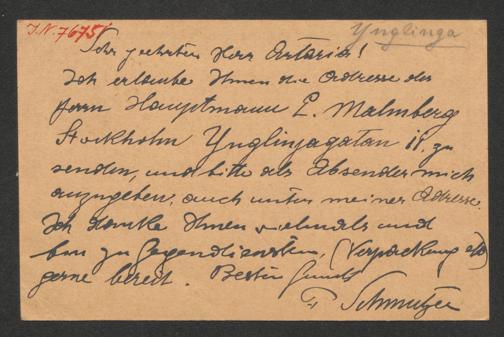 I.N. 76751
Ynglinga
Sehr geehrter Herr Artaria!
Ich erlaube Ihnen die Adresse des
Herrn Hauptmann E. Malmberg
Stockholm Ynglinjagatan 11. zu
senden, und bitte als Absender mich
anzugeben, auch unter meiner Adresse.
Ich danke Ihnen vielmals und
bin zu Gegendiensten, (Verpackung etz)
gerne bereit. Besten Gruß
F Schmutzer